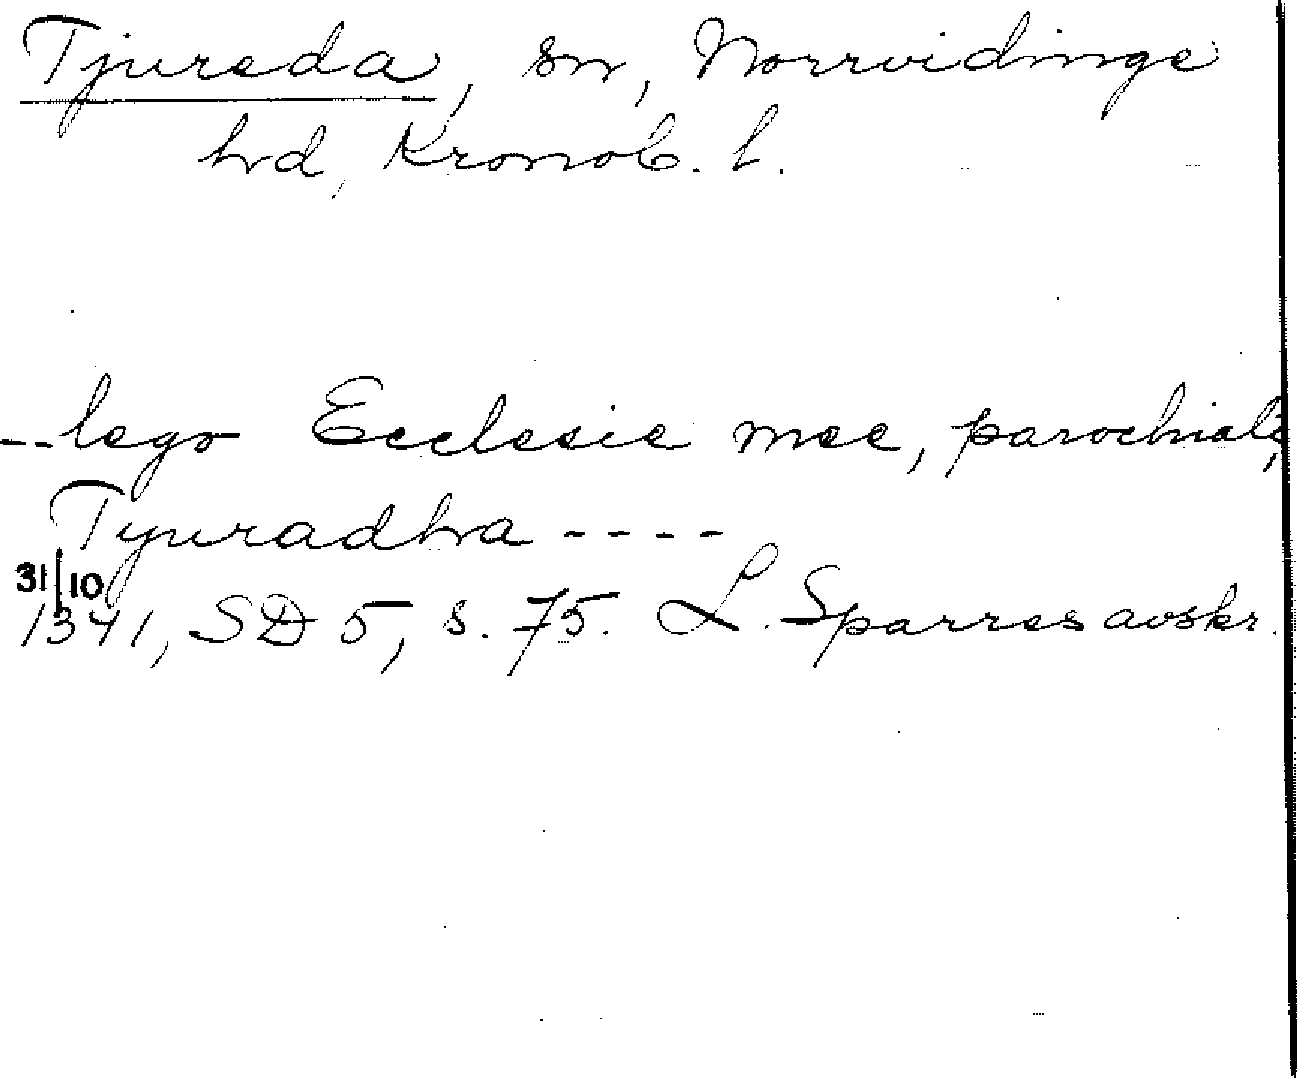 Tjureda, sn, Norrvidinge
hd, Kronob. l.
--lego Ecclesie mee, parochiali,
Tyuradha ----
31/10
1341, SD 5, s. 75. L. Sparres avskr.